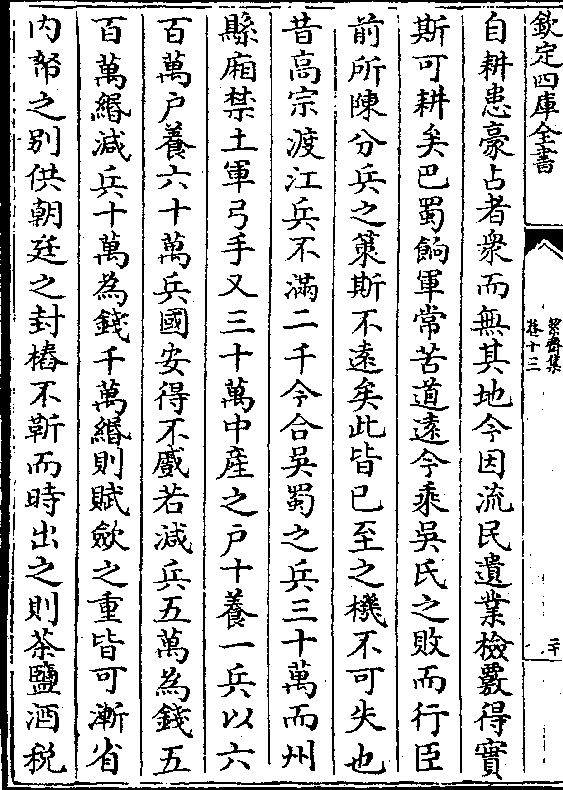 欽定四庫全書
絜齋集
卷十三
二十
自耕患豪占者衆而無其地今因流民遺業檢覈得實
斯可耕矣巴蜀餉軍常苦道遠今乘吳氏之敗而行臣
前所陳分兵之策斯不遠矣此皆已至之機不可失也
昔高宗渡江兵不滿二千今合吳蜀之兵三十萬而州
縣廂禁土軍弓手又三十萬中產之戶十養一兵以六
百萬戶養六十萬兵國安得不蹙若減兵五萬為錢五
百萬緡減兵十萬為錢千萬緡則賦歛之重皆可漸省
内帑之别供朝廷之封樁不靳而時出之則茶鹽酒稅